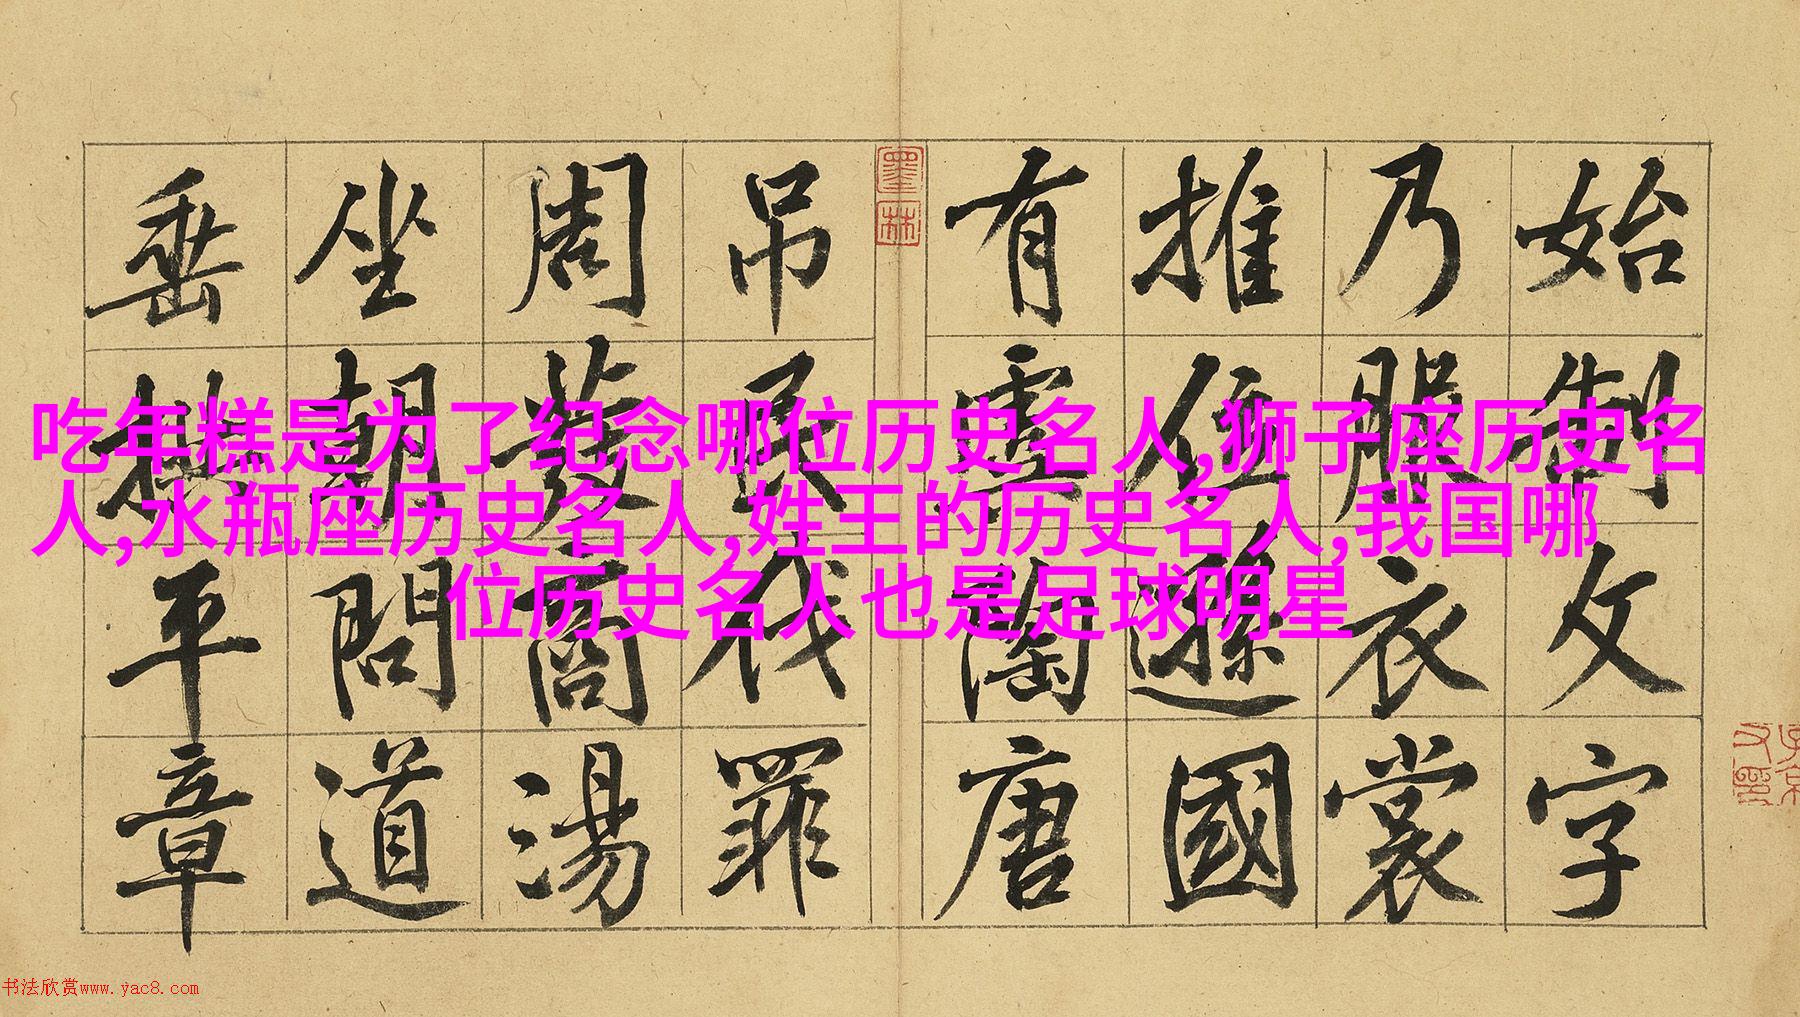 始制文字
乃服衣裳
推位遜國
有虞陶唐
吊民伐罪
周發商湯
坐朝問道
垂拱平章
墨林
吃年糕是为了纪念哪位历史名人,狮子座历史名
人,水瓶座历史名人,姓王的历史名人,我国哪
位历史名人也是足球明星
书法欣赏www.yac8.com